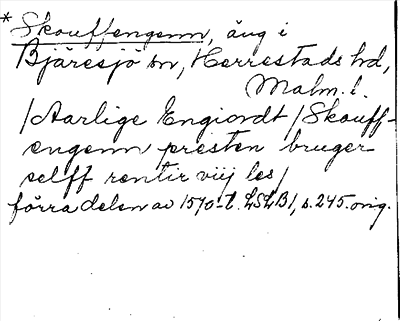 * Skouffengenn, äng i
Bjäresjö sn, Herrestads hd,
Malm. l.
/Aarlige Engiordt/Skouff-
engenn presten bruger
selff rentir viij les/
förra delen av 1570-t. LSLB1, s. 245. orig.